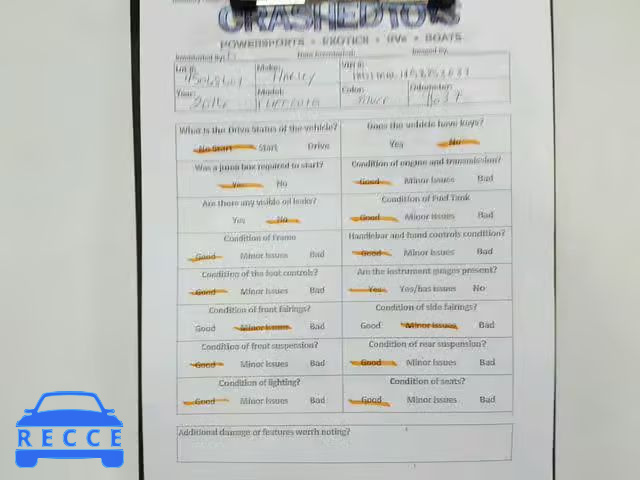 CRASHEDTOYS
POWERSPORTS • EXOTICS • RVs • BOATS
Inventoried By: Date Inventoried: Imaged By:
Lot #: Make: VIN #:
Harley
Year: Model: Color: Odometer:
2016 Silver
What is the Drive Status of the vehicle? Does the vehicle have keys?
No Start Start Drive Yes No
Was a jump box required to start? Condition of engine and transmission?
Yes No Good Minor Issues Bad
Are there any visible oil leaks? Condition of Fuel Tank
Yes No Good Minor Issues Bad
Condition of Frame Handlebar and hand controls condition?
Good Minor Issues Bad Good Minor Issues Bad
Condition of the foot controls? Are the instrument guages present?
Good Minor Issues Bad Yes Yes/has issues No
Condition of front fairings? Condition of side fairings?
Good Minor Issues Bad Good Minor Issues Bad
Condition of front suspension? Condition of rear suspension?
Good Minor Issues Bad Good Minor Issues Bad
Condition of lighting? Condition of seats?
Good Minor Issues Bad Good Minor Issues Bad
Additional damage or features worth noting?
RECCE